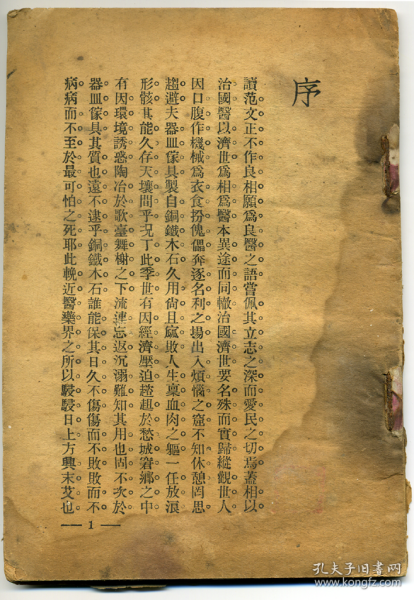 序
讀范文正不作良相願爲良醫之語嘗佩其立志之深而愛民之切焉蓋相以
治國醫以濟世爲相爲醫本異途而同轍治國濟世要名殊而實歸縱觀世人
因口腹作機械爲衣食扮傀儡奔逐名利之場出入煩惱之窟不知休憩罔思
趨避夫器皿傢具製自銅鐵木石久用尙且窳敗人生稟血肉之軀一任放浪
形骸其能久存天壤間乎況丁此季世有因經濟壓迫趦趄於愁城窘鄉之中
有因環境誘惑陶冶於歌臺舞榭之下流連忘返沉溺難知其用也固不次於
器皿傢具其質也遠不逮乎銅鐵木石誰能保其日久不傷傷而不敗敗而不
病病而不至於最可怕之死耶此輓近醫藥界之所以駸駸日上方興未艾也
— 1 —
孔夫子旧書网
www.kongfz.com